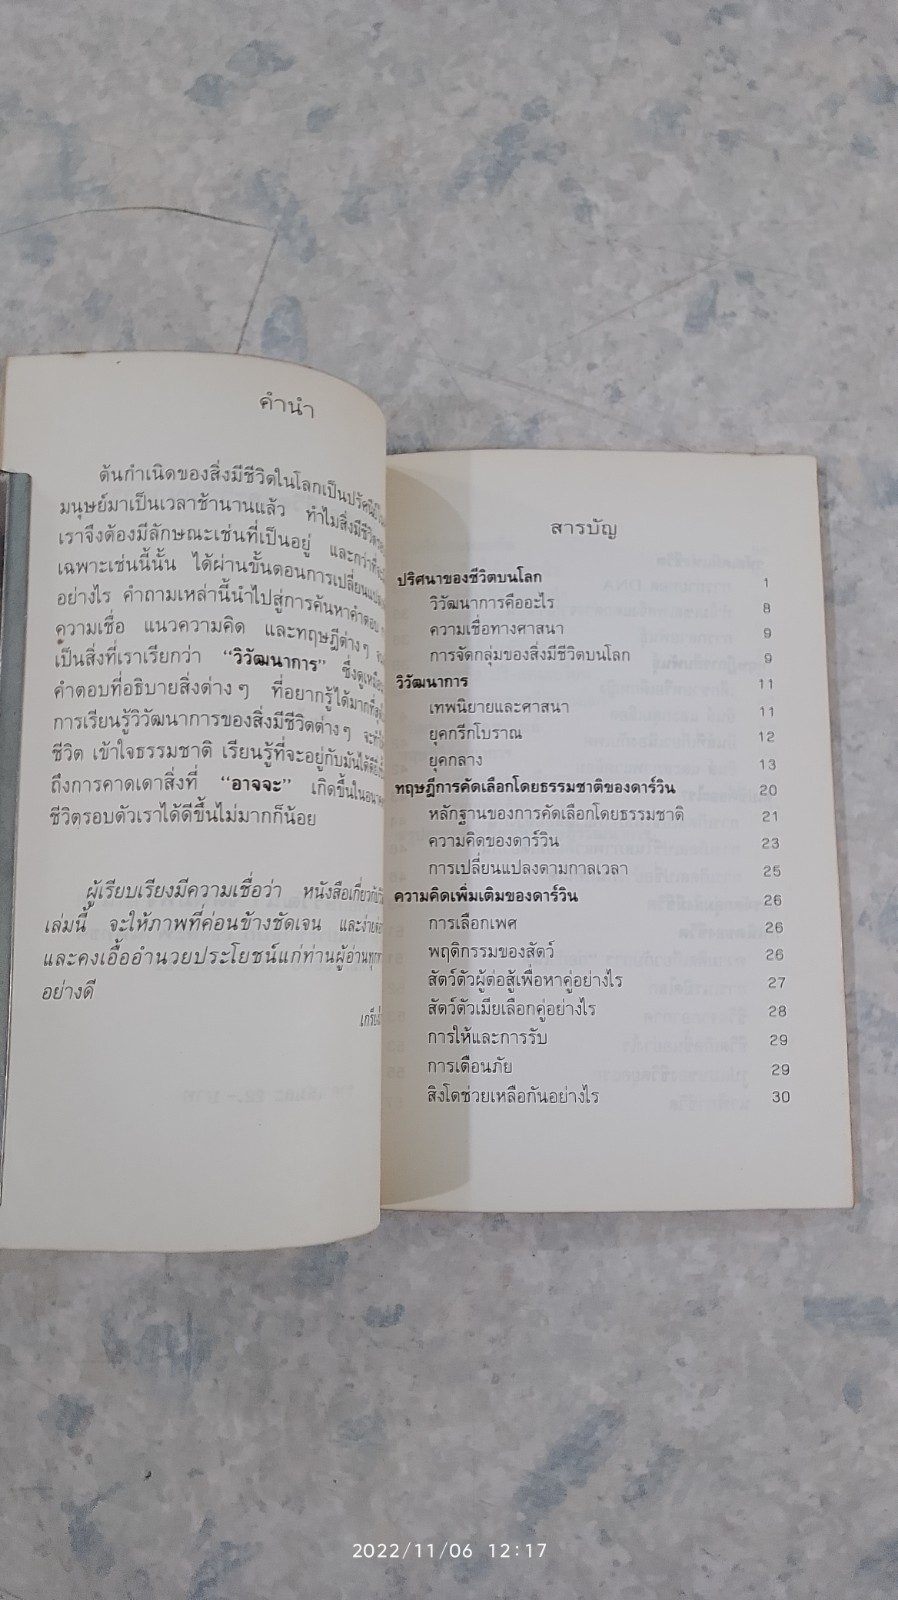 คำนำ
ต้นกำเนิดของสิ่งมีชีวิตในโลกเป็น
มนุษย์มาเป็นเวลาช้านานแล้ว ทำไมสิ่งมีชีวิต
เราจึงต้องมีลักษณะเช่นที่เป็นอยู่ และกว่าที่
เฉพาะเช่นนี้นั้น ได้ผ่านขั้นตอนการเปลี่ยนแปลง
อย่างไร คำถามเหล่านี้นำไปสู่การค้นหาคำตอบ
ความเชื่อ แนวความคิด และทฤษฎีต่างๆ
เป็นสิ่งที่เราเรียกว่า “วิวัฒนาการ” ซึ่งดูเหมือน
คำตอบที่อธิบายสิ่งต่างๆ ที่อยากรู้ได้มากที่สุด
การเรียนรู้วิวัฒนาการของสิ่งมีชีวิตต่างๆ
ชีวิต เข้าใจธรรมชาติ เรียนรู้ที่จะอยู่กับมันได้
ถึงการคาดเดาสิ่งที่ “อาจจะ” เกิดขึ้นใน
ชีวิตรอบตัวเราได้ดีขึ้นไม่มากก็น้อย
ผู้เรียบเรียงมีความเชื่อว่า หนังสือเกี่ยวกับ
เล่มนี้ จะให้ภาพที่ค่อนข้างชัดเจน และง่าย
และคงเอื้ออำนวยประโยชน์แก่ท่านผู้อ่านทุก
อย่างดี
สารบัญ
ปริศนาของชีวิตบนโลก 1
วิวัฒนาการคืออะไร 8
ความเชื่อทางศาสนา 9
การจัดกลุ่มของสิ่งมีชีวิตบนโลก 9
วิวัฒนาการ 11
เทพนิยายและศาสนา 11
ยุคกรีกโบราณ 12
ยุคกลาง 13
ทฤษฎีการคัดเลือกโดยธรรมชาติของดาร์วิน 20
หลักฐานของการคัดเลือกโดยธรรมชาติ 21
ความคิดของดาร์วิน 23
การเปลี่ยนแปลงตามกาลเวลา 25
ความคิดเพิ่มเติมของดาร์วิน 26
การเลือกเพศ 26
พฤติกรรมของสัตว์ 26
สัตว์ตัวผู้ต่อสู้เพื่อหาคู่อย่างไร 27
สัตว์ตัวเมียเลือกคู่อย่างไร 28
การให้และการรับ 29
การเตือนภัย 29
สิงโตช่วยเหลือกันอย่างไร 30
2022/11/06 12:17